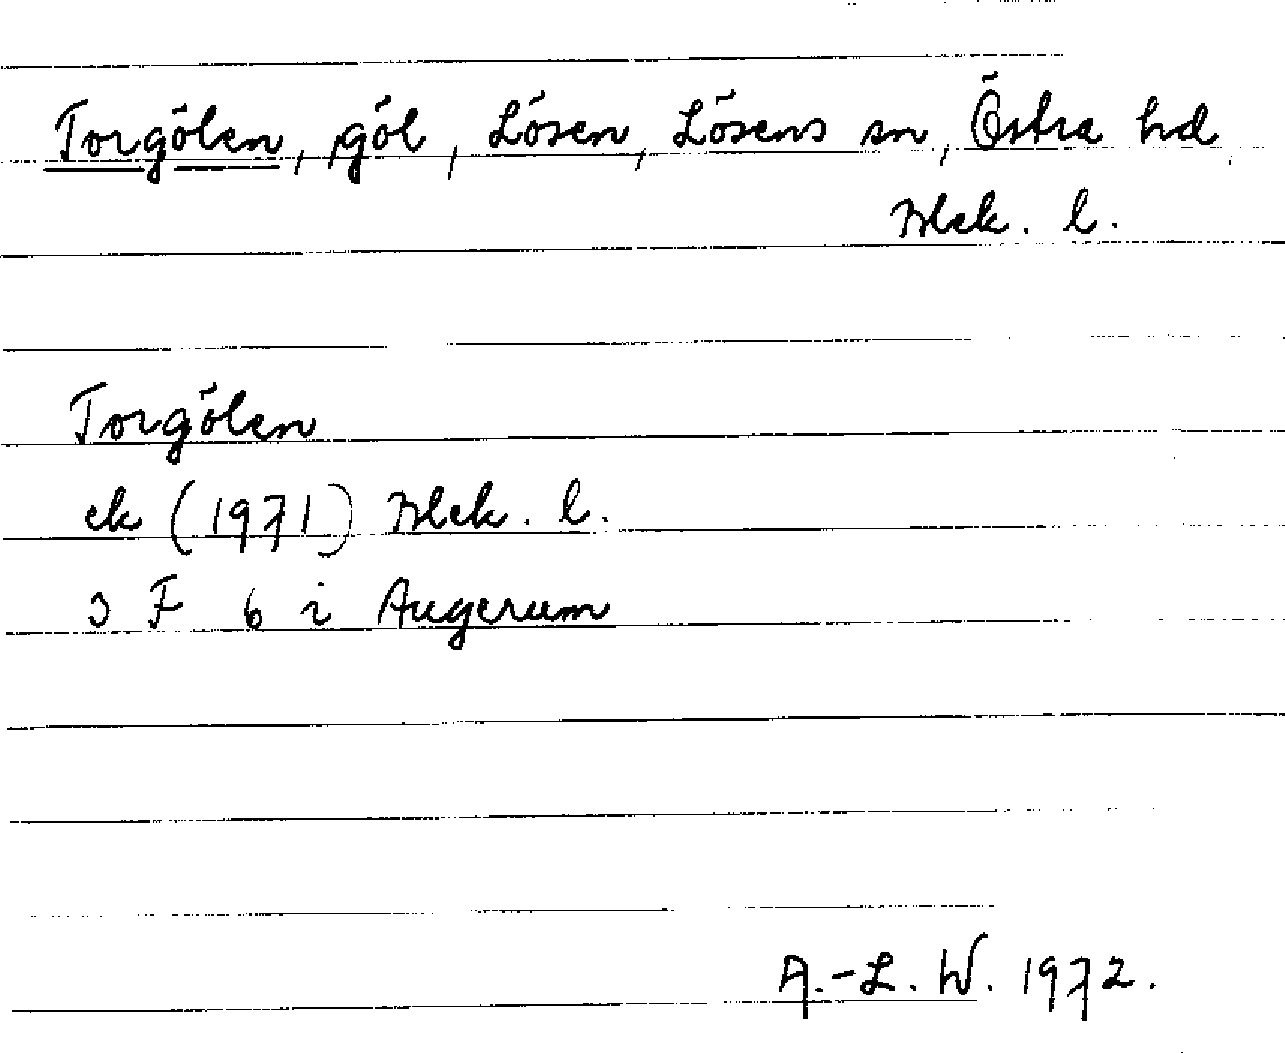 Torgölen, göl, Lösen, Lösens sn, Östra hd
Blek. l.
Torgölen
ek (1971) Blek. l.
3 F 6 i Augerum
A.-L. W. 1972.